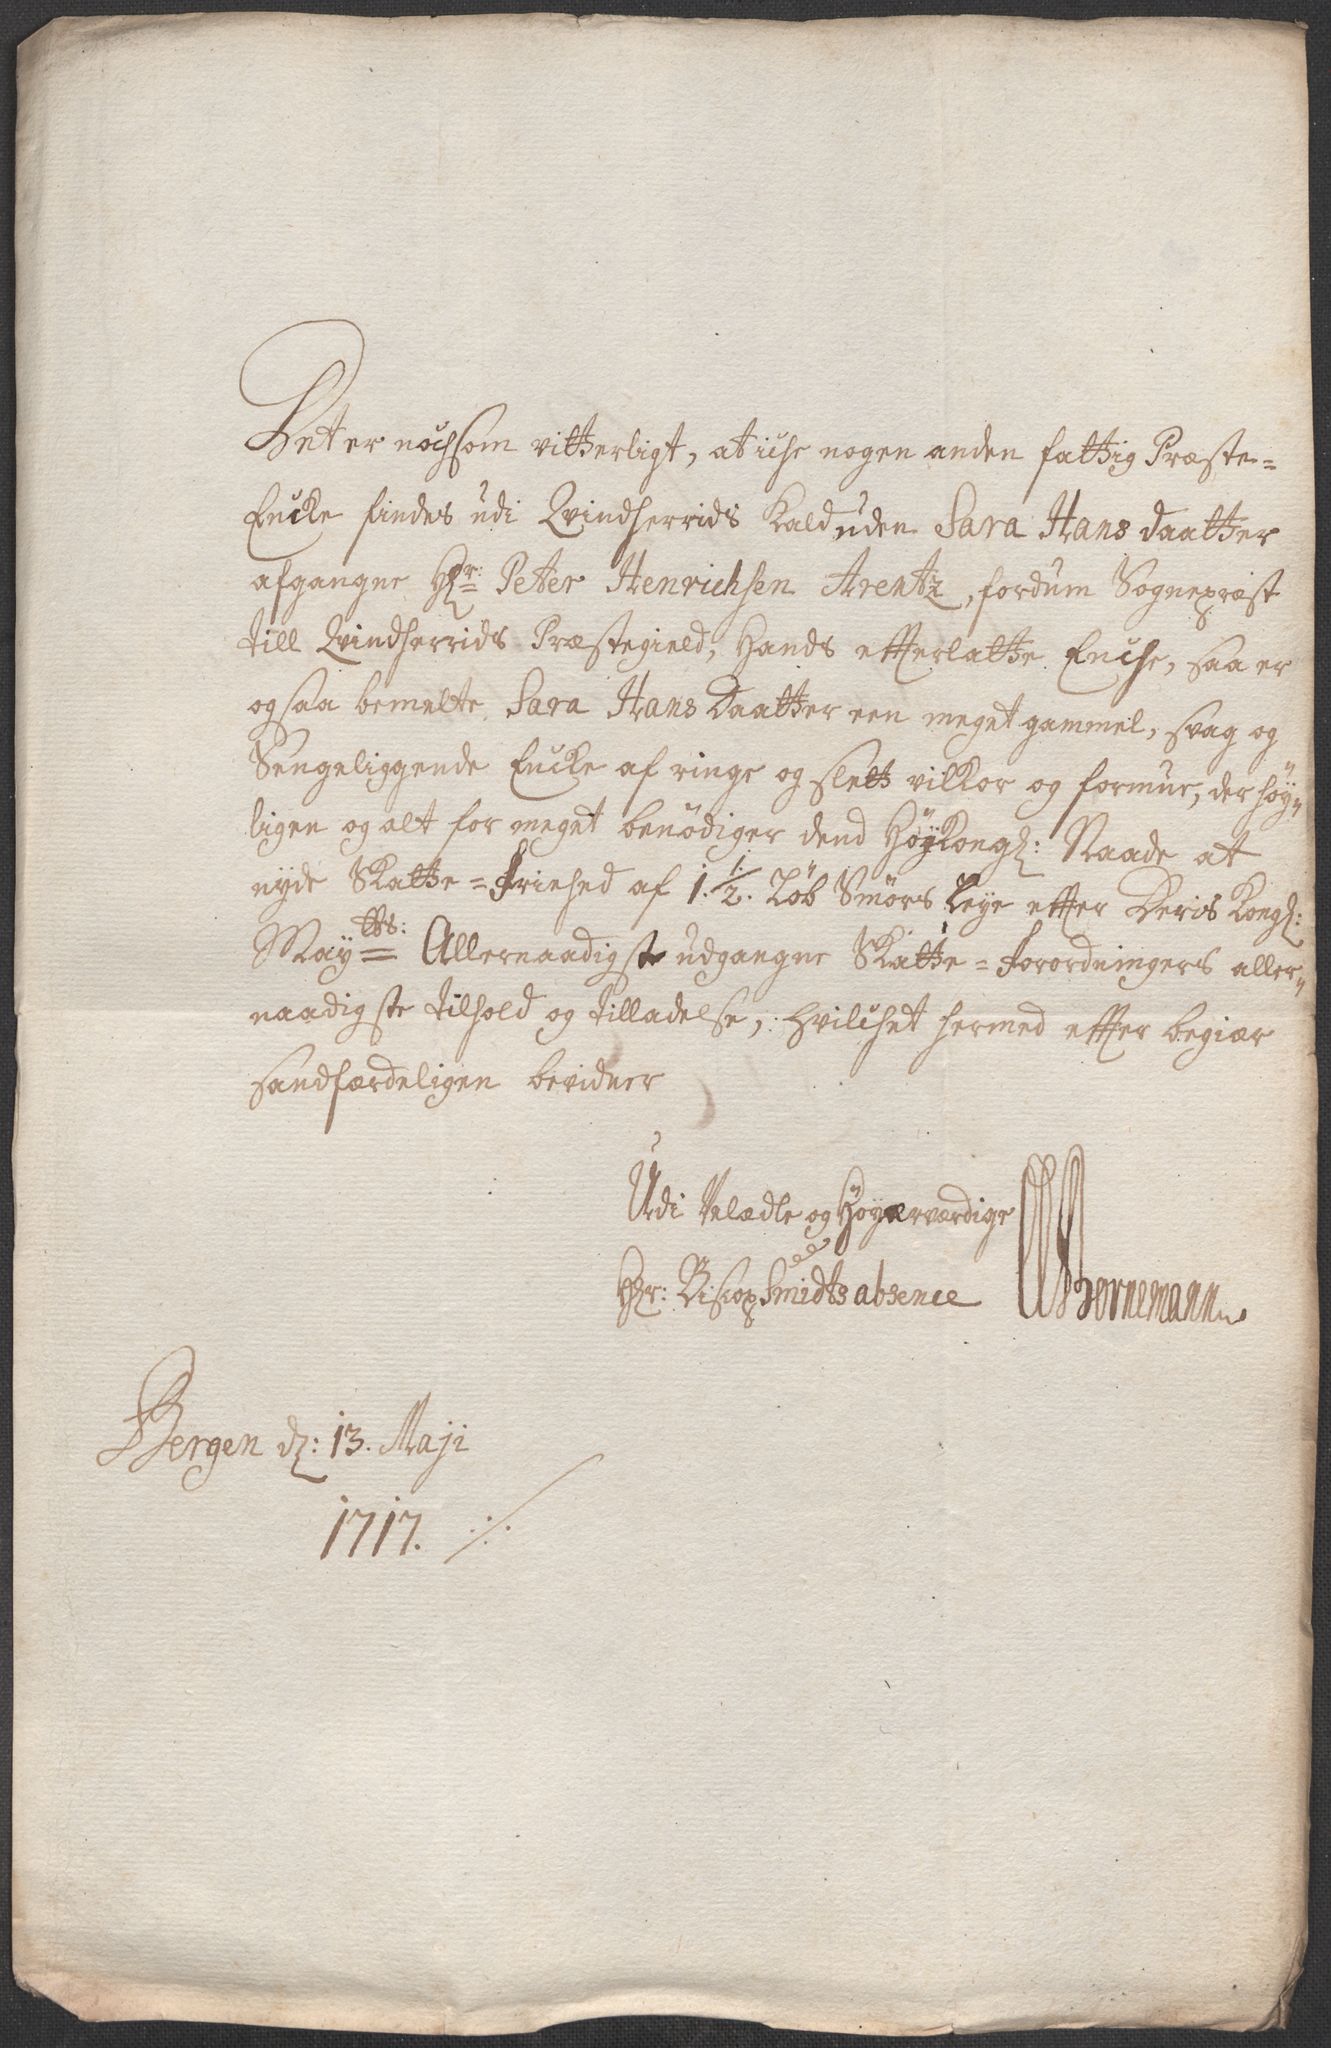 Det er nochsom vitterligt, at iche nogen anden fattig Præste=
Encke findes udi Qvindherrids Kald uden Sara Hans Daatter
afgangne Hr: Peter Henrichsen Arentz, fordum Sognepræst
till Qvindherrids Præstegield, Hands efterlatte Enche, saa er
og saa bemelte Sara Hans Daatter een meget gammel, svag og
Sengeliggende Encke af ringe og slett vilkor og formue, der höy„
ligen og alt for meget benödiger dend Höy Kongl: Naade at
nyde Skatte=Friehed af 1. 1/2. Löb Smörs Leye efter Deris Kongl:
Maytts: Allernaadigste udgangne Skatte=Forordningers aller„
naadigste tilhold og tilladelse, hvilchet hermed efter begiær
sandfærdeligen bevidner
Udi Velædle og Höyærværdige
Hr: Biscop Smidts absence Bornemann
Bergen d: 13. Maji
1717.